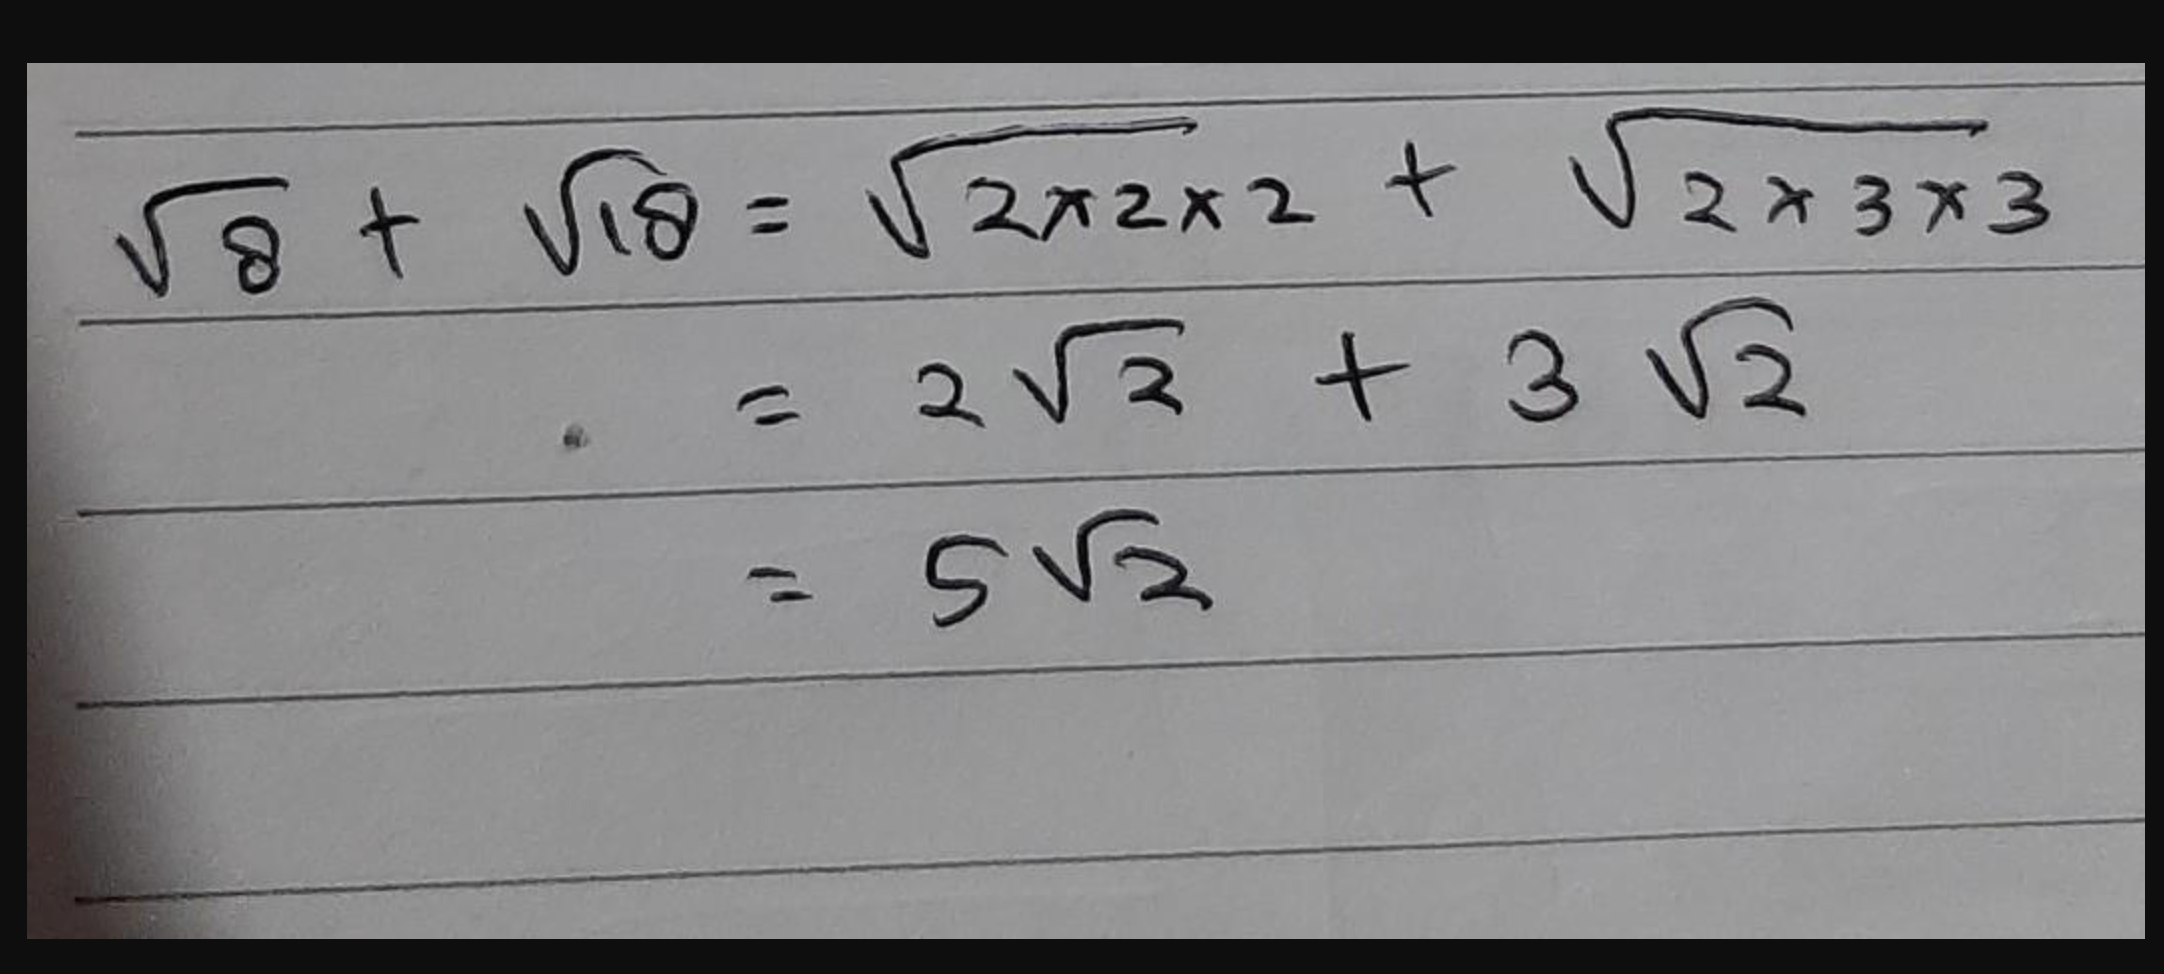 √8 + √18 = √2×2×2 + √2×3×3
= 2√2 + 3√2
= 5√2